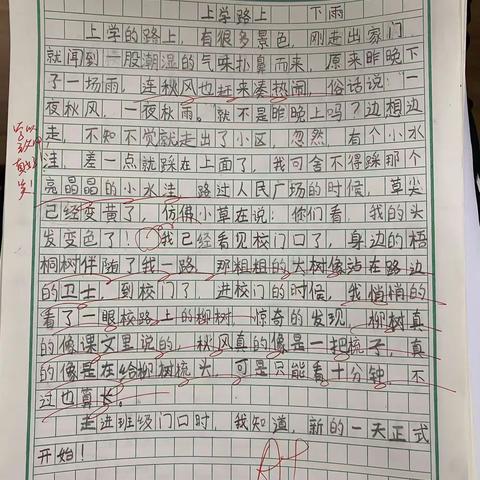 上学路上 下雨
上学的路上，有很多景色，刚走出家门，
就闻到一股潮湿的气味扑鼻而来，原来昨晚下
了一场雨，连秋风也赶来凑热闹，俗话说：一
夜秋风，一夜秋雨。就不是昨晚上吗？边想边
走，不知不觉就走出了小区，忽然，有个小水
洼，差一点就踩在上面了，我可舍不得踩那个
亮晶晶的小水洼，路过人民广场的时候，草尖
已经变黄了，仿佛小草在说：你们看，我的头
发变色了！我已经看见校门口了，身边的梧
桐树伴随了我一路，那粗粗的大树像站在路边
的卫士，到校门了，进校门的时候，我悄悄的
看了一眼校路上的柳树，惊奇的发现，柳树真
的像课文里说的，秋风真的像是一把梳子，真
的像是在给柳树梳头，可是只能看十分钟，不
过也真长。
走进班级门口时，我知道，新的一天正式
开始！